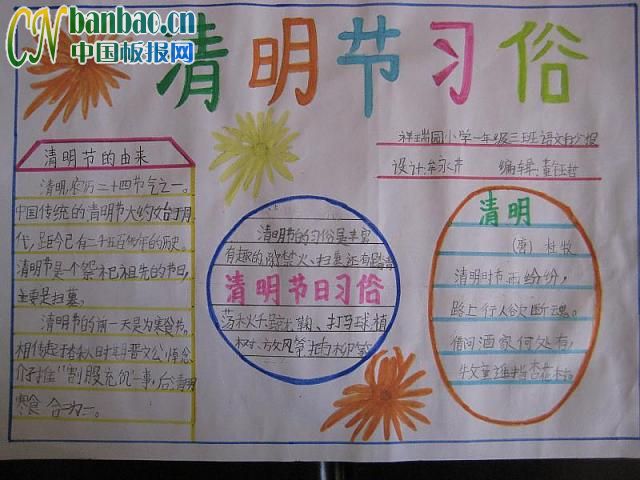 CN banbao.cn
中国板报网
清明节习俗
祥瑞园小学一年级三班语文自办报
设计:牟永卉 编辑:董钰哲
清明节的由来
清明,农历二十四节气之一。
中国传统的清明节大约始于周
代,距今已有二千五百多年的历史。
清明节是一个祭祀祖先的节日,
主要是扫墓。
清明节的前一天是为寒食节。
相传起于春秋时期晋文公,悼念
介子推“割股充饥”一事,后清明
寒食 合二为一。
清明节的习俗是丰富
有趣的,除禁火、扫墓还有踏青
清明节日习俗
荡秋千、蹴鞠、打马球、植
树、放风筝、插柳
清明
(唐) 杜牧
清明时节雨纷纷,
路上行人欲断魂。
借问酒家何处有,
牧童遥指杏花村。